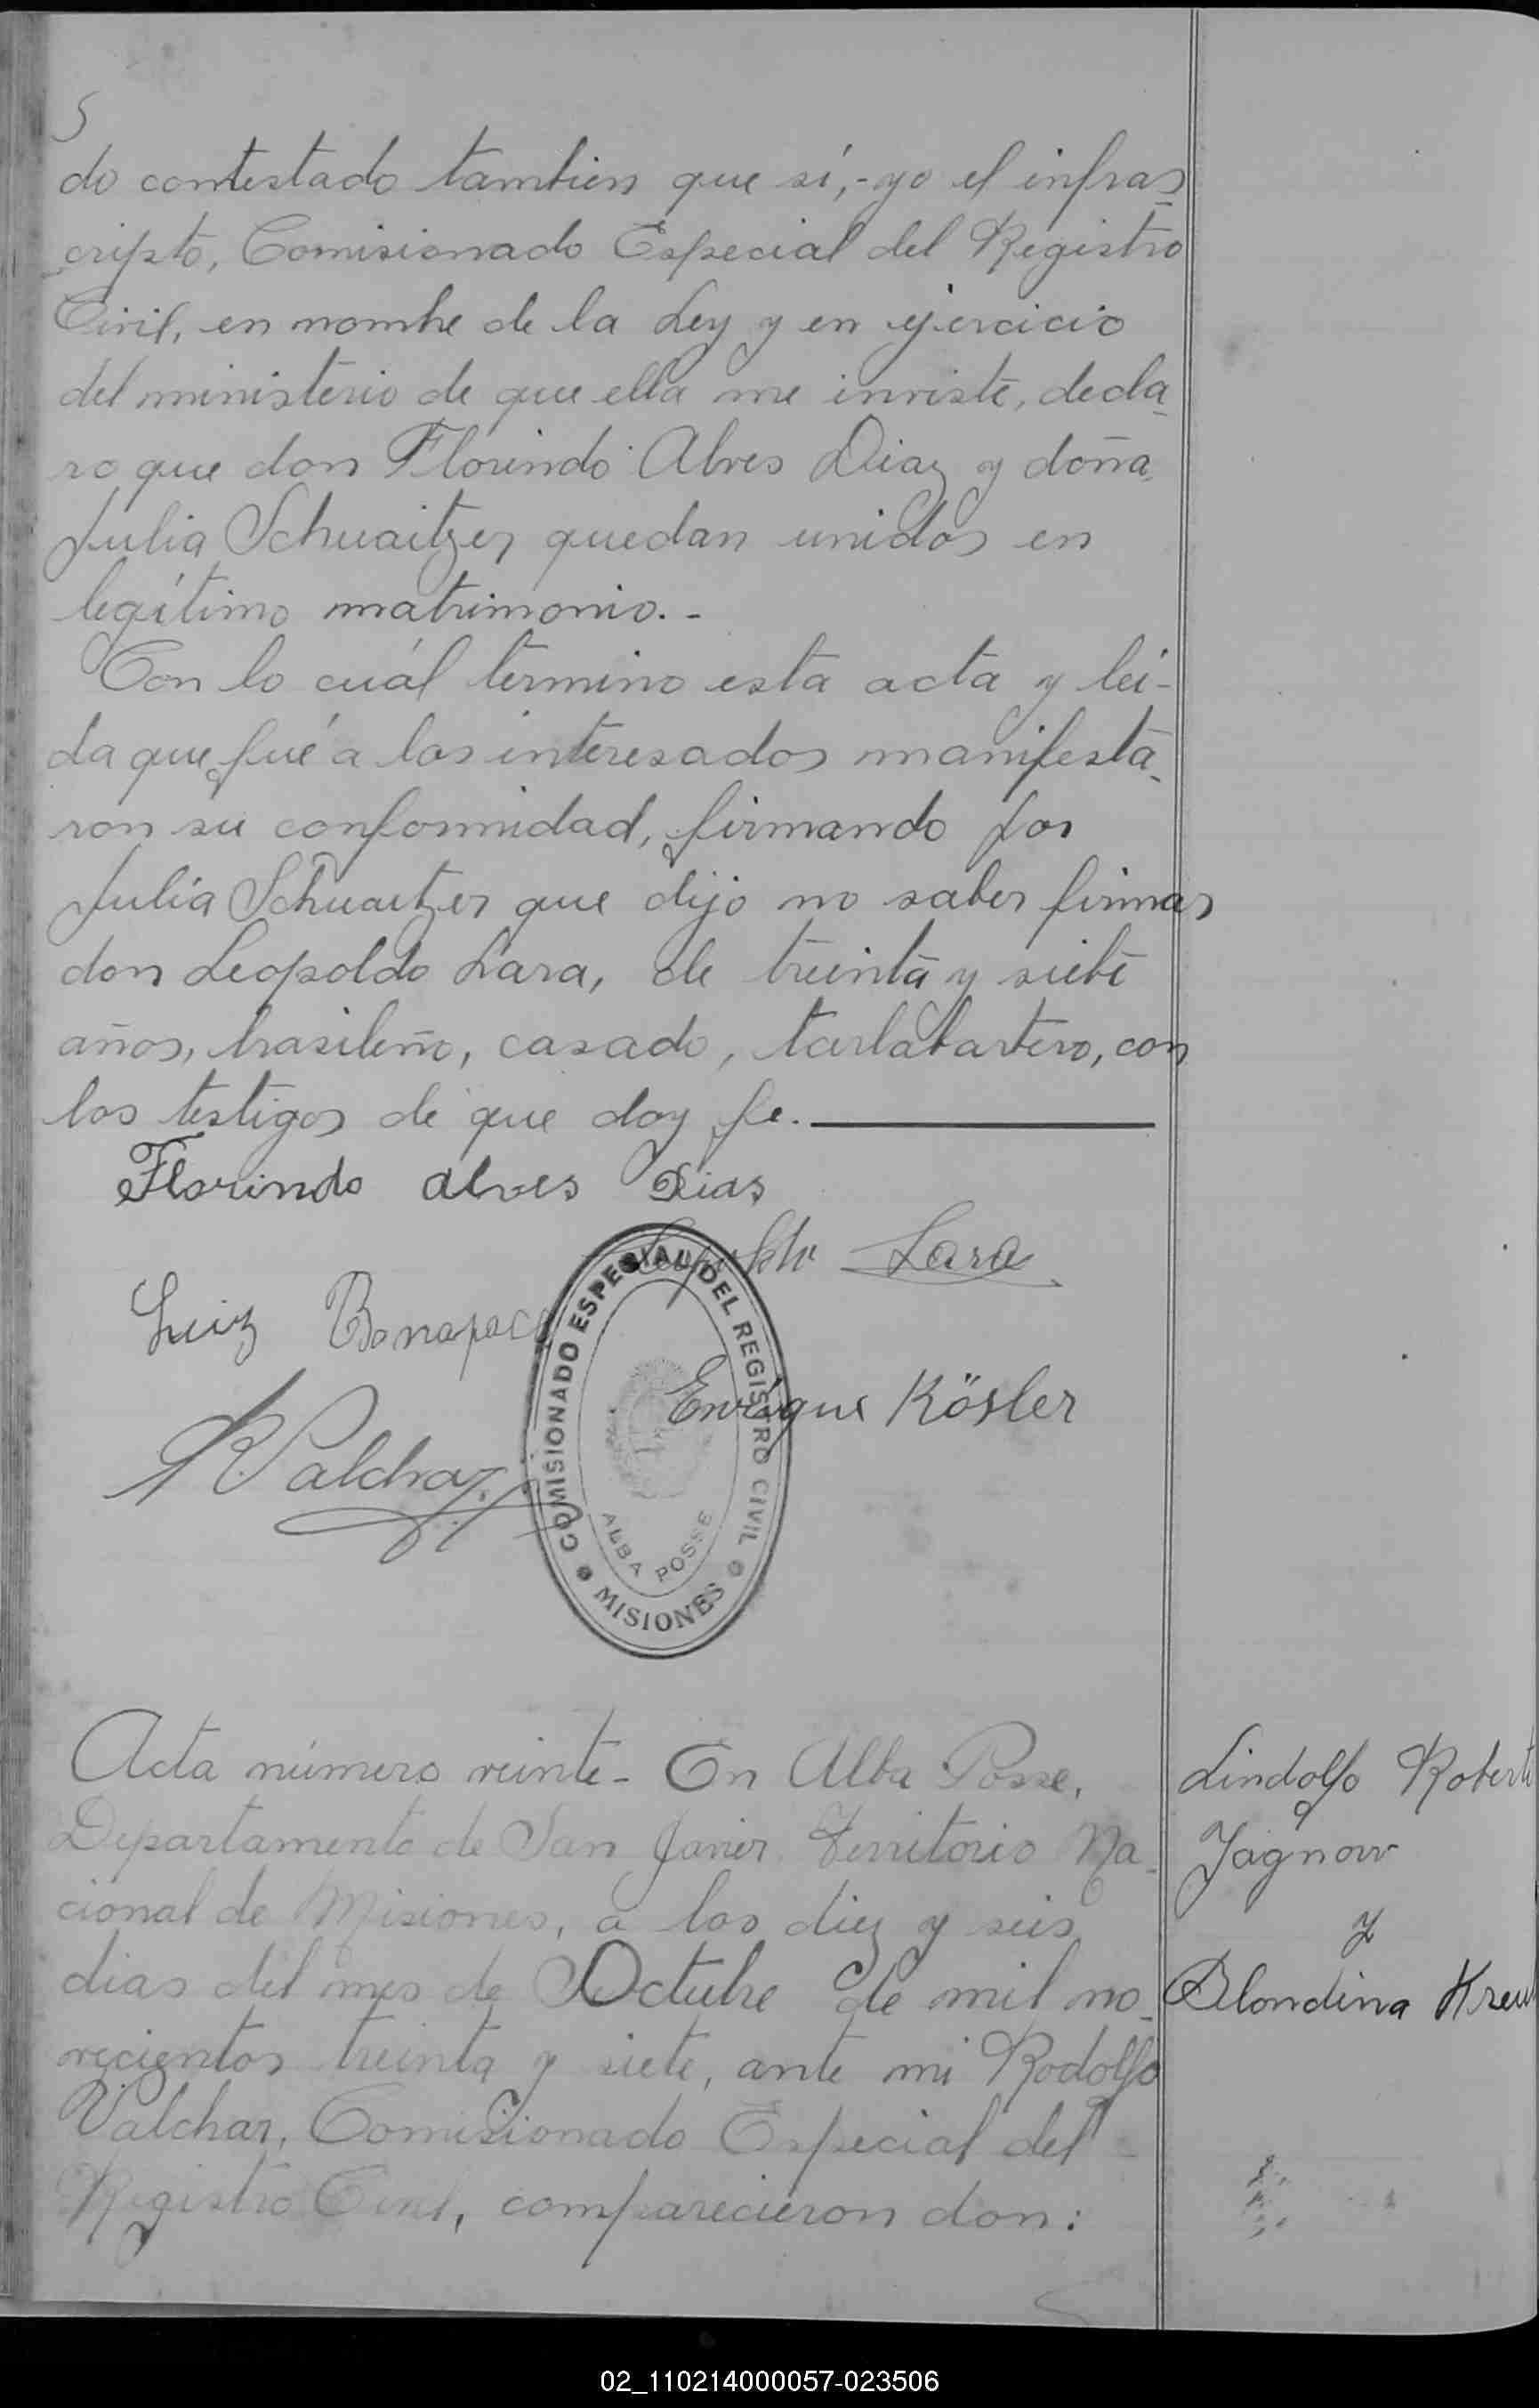 5
do contestado tambien que sí,- yo el infras
cripto, Comisionado Especial del Registro
Civil, en nombre de la Ley y en ejercicio
del ministerio de que ella me inviste, decla-
ro que don Florindo Alves Diaz y doña
Julia Schuaitzer quedan unidos en
legítimo matrimonio.-
Con lo cuál termino esta acta y leí-
da que fué a los interesados manifesta-
ron su conformidad, firmando por
Julia Schuaitzer que dijo no saber firmar
don Leopoldo Lara, de treinta y siete
años, brasileño, casado, tarlabartero, con
los testigos de que doy fe.
Florindo Alves Dias
Leopoldo Lara
Luiz Bonapace
Enrique Kösler
R Valchar
COMISIONADO ESPECIAL DEL REGISTRO CIVIL
ALBA POSSE
MISIONES
Acta número veinte- En Alba Posse,
Departamento de San Javier Territorio Na-
cional de Misiones, a los diez y seis
dias del mes de Octubre de mil no-
vecientos treinta y siete, ante mi Rodolfo
Valchar, Comisionado Especial del
Registro Civil, comparecieron don:
Lindolfo Robert
Jagnow
y
Blondina Kreu
02_110214000057-023506